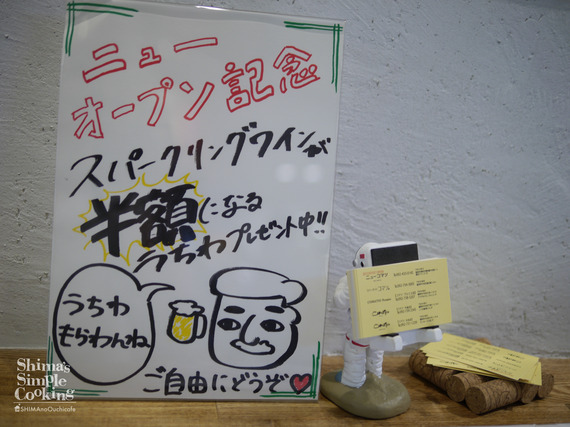 ニュー
オープン記念
スパークリングワインが
半額になる
うちわプレゼント中!!
うちわ
もらわんね
ご自由にどうぞ♥
Shima's
Simple
Cooking
@SHIMAnoOuchicafe